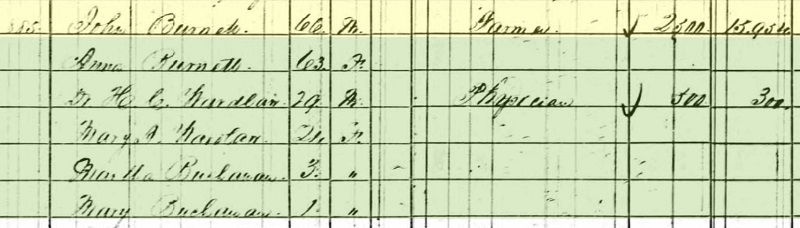 John Burnett 66 M. Farmer 2,500
Anna Burnett 63 F.
Dr H C. Wardlaw 29 M. Physician 500 300
Mary Wardlaw 24 F.
Martha Buchanan 3 "
Mary Buchanan 1 "